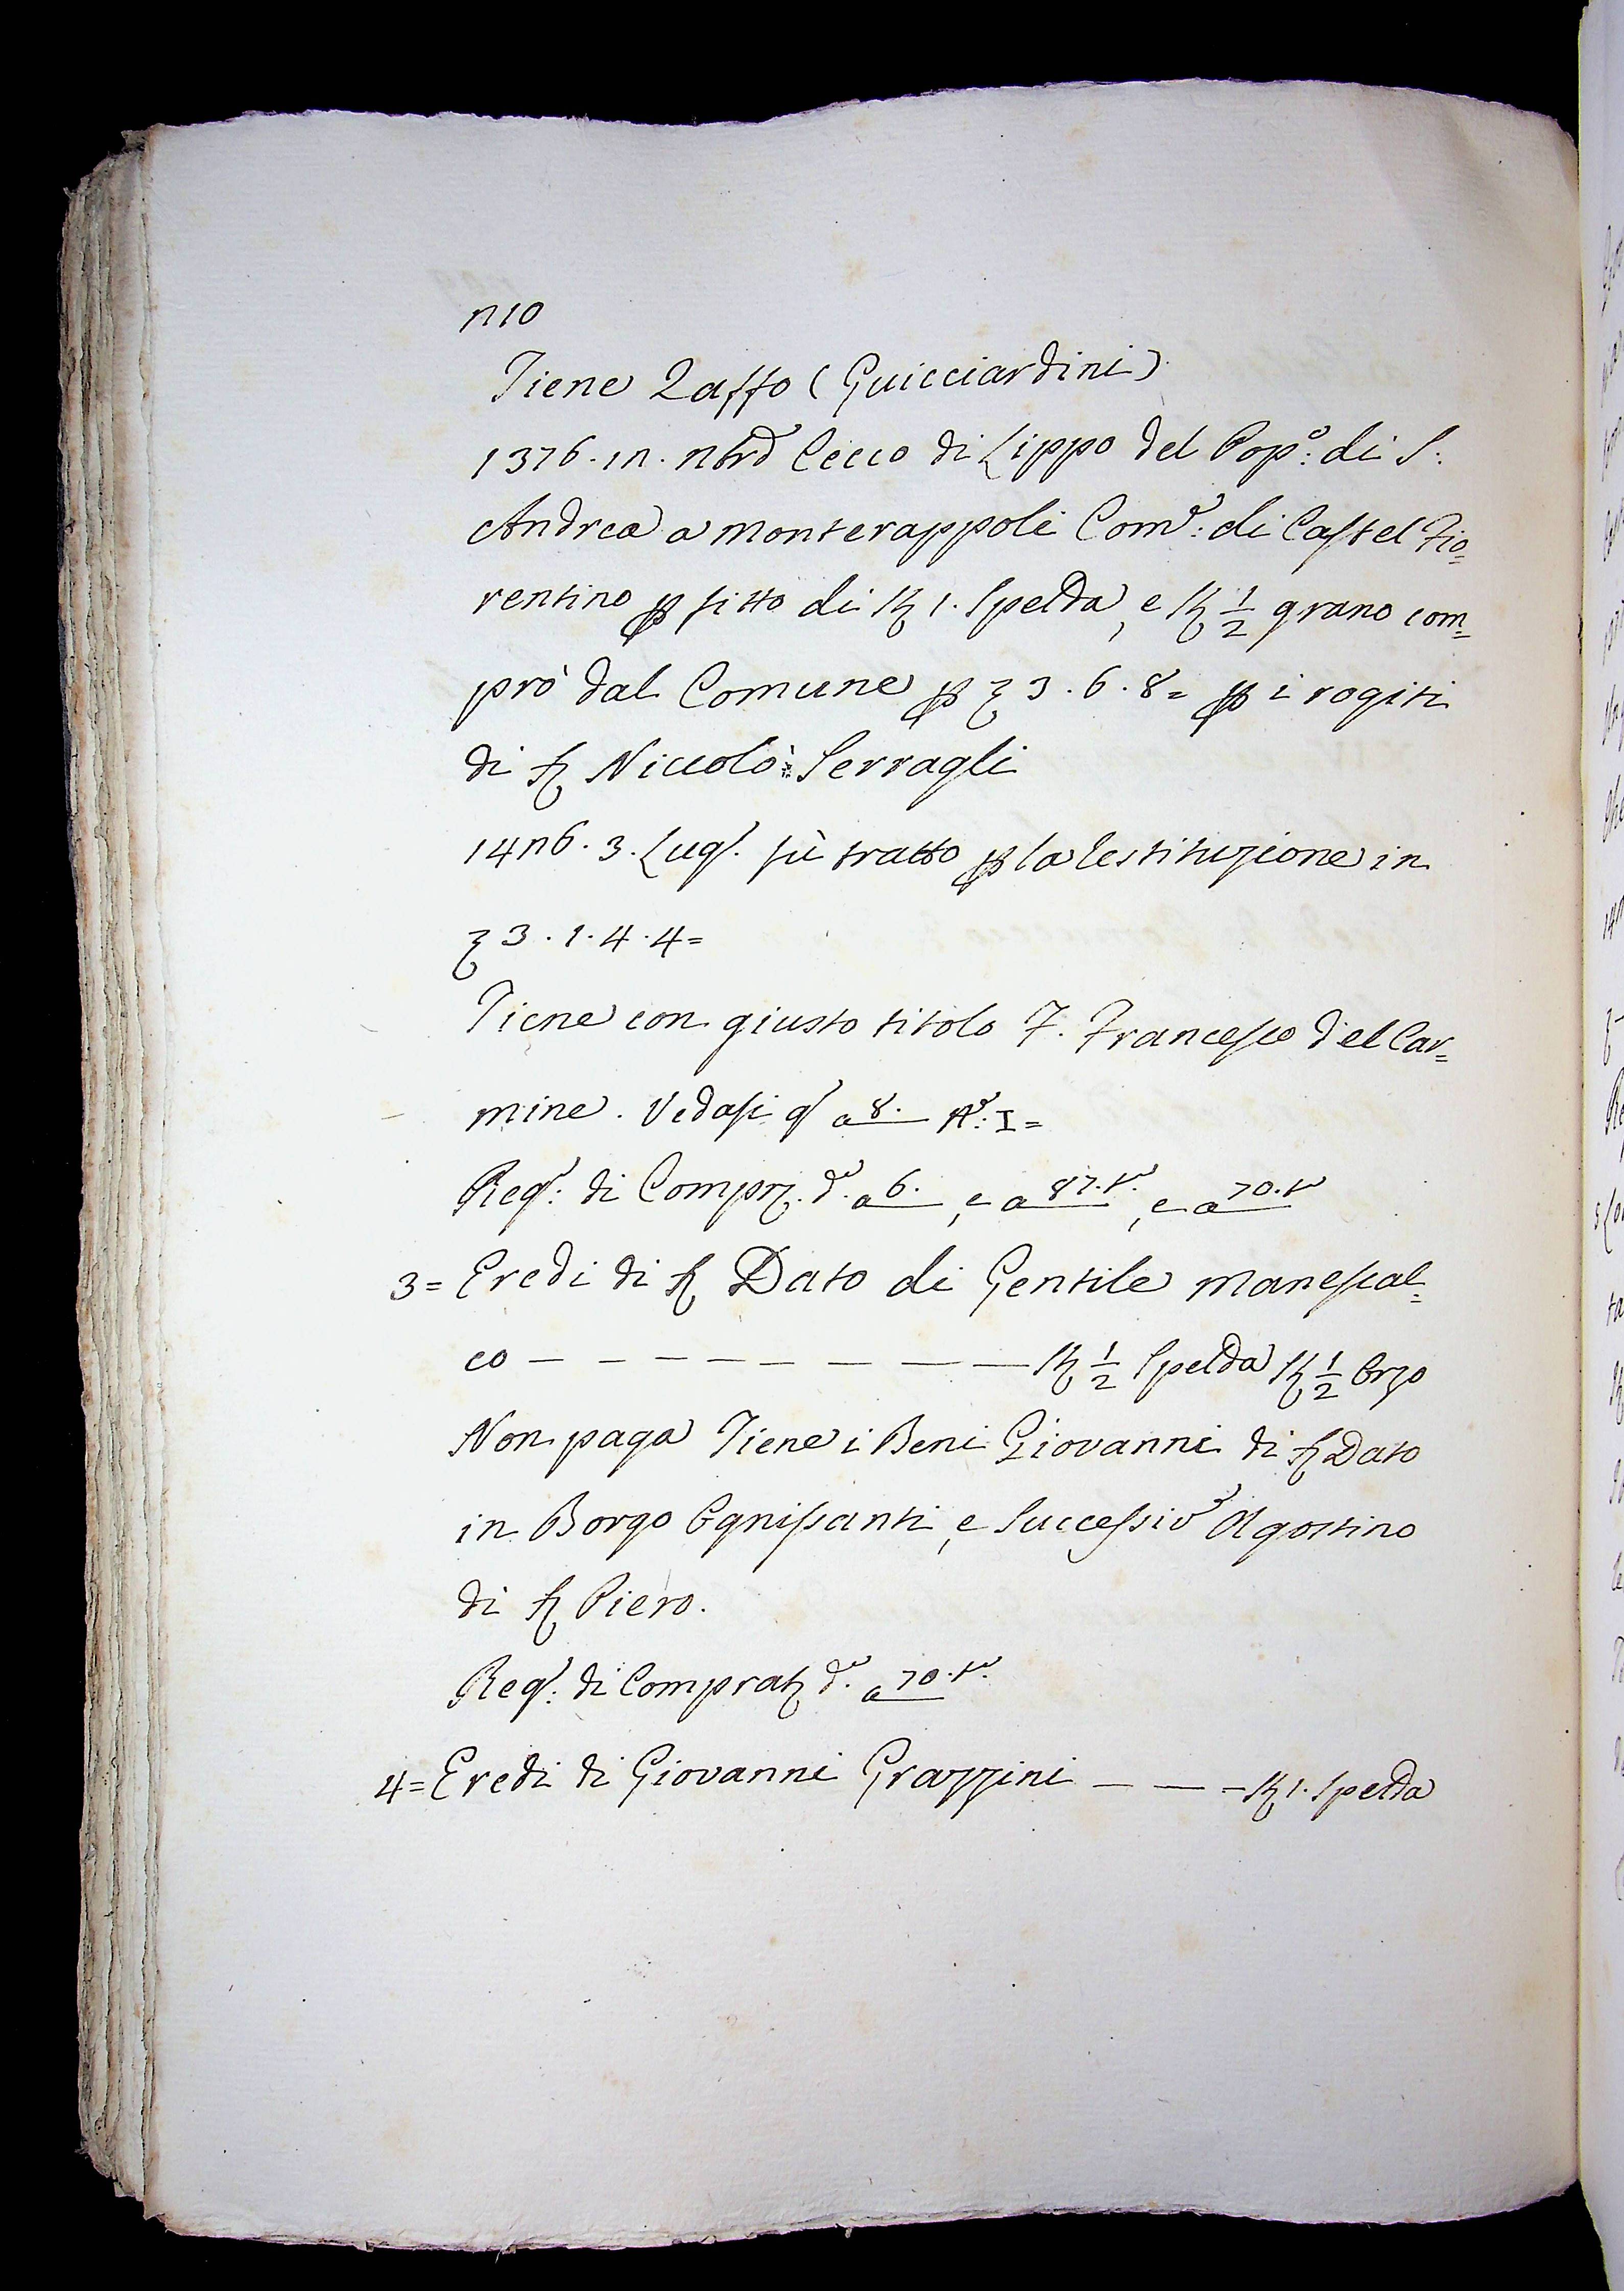 210
Tiene Zaffo (Guicciardini)
1376. 12. Nbre Cecco di Lippo del Pop:o di S:
Andrea a Monterappoli Com:e di Castel Fio=
rentino per fitto di St 1. Spelda, e St 1/2 grano com=
prò dal Comune per £ 3. 6. 8= per i rogiti
di Sr Niccolò Serragli
1426. 3. Lugl. fù tratto per la restituzione in
£ 3. 1. 4. 4=
Tiene con giusto titolo F. Francesco del Car=
mine. Vedasi qs a 8. N:o I=
Reg: di Compre. do. a 6. , e a 87. to. , e a 70. to
3= Eredi di Sr Dato di Gentile Manescal=
co — — — — — — — — — St 1/2 Spelda St 1/2 Orzo
Non paga Tiene i Beni Giovanni di Sr Dato
in Borgo Ognissanti, e Successive Agostino
di Sr Piero.
Reg: di Comprat do. a 70. to.
4= Eredi di Giovanni Grazzini — — — St 1. Spelda